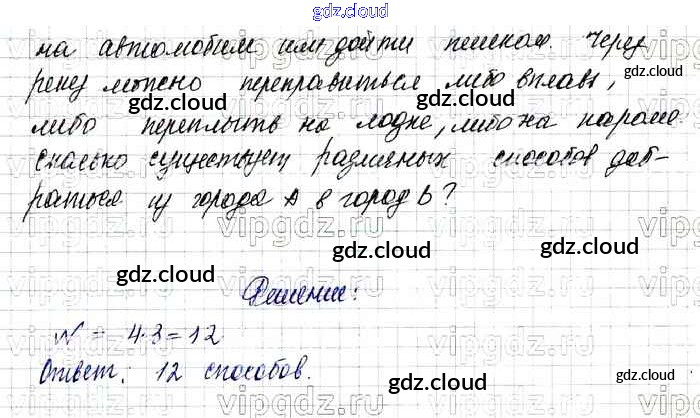 gdz.cloud
на автомобиле или дойти пешком. Через
реку можно переправиться либо вплавь,
либо переплыть на лодке, либо на пароме
сколько существует различных способов доб-
раться из города А в город В?
Решение:
N = 4·3=12
Ответ: 12 способов.
gdz.cloud
vipgdz.ru